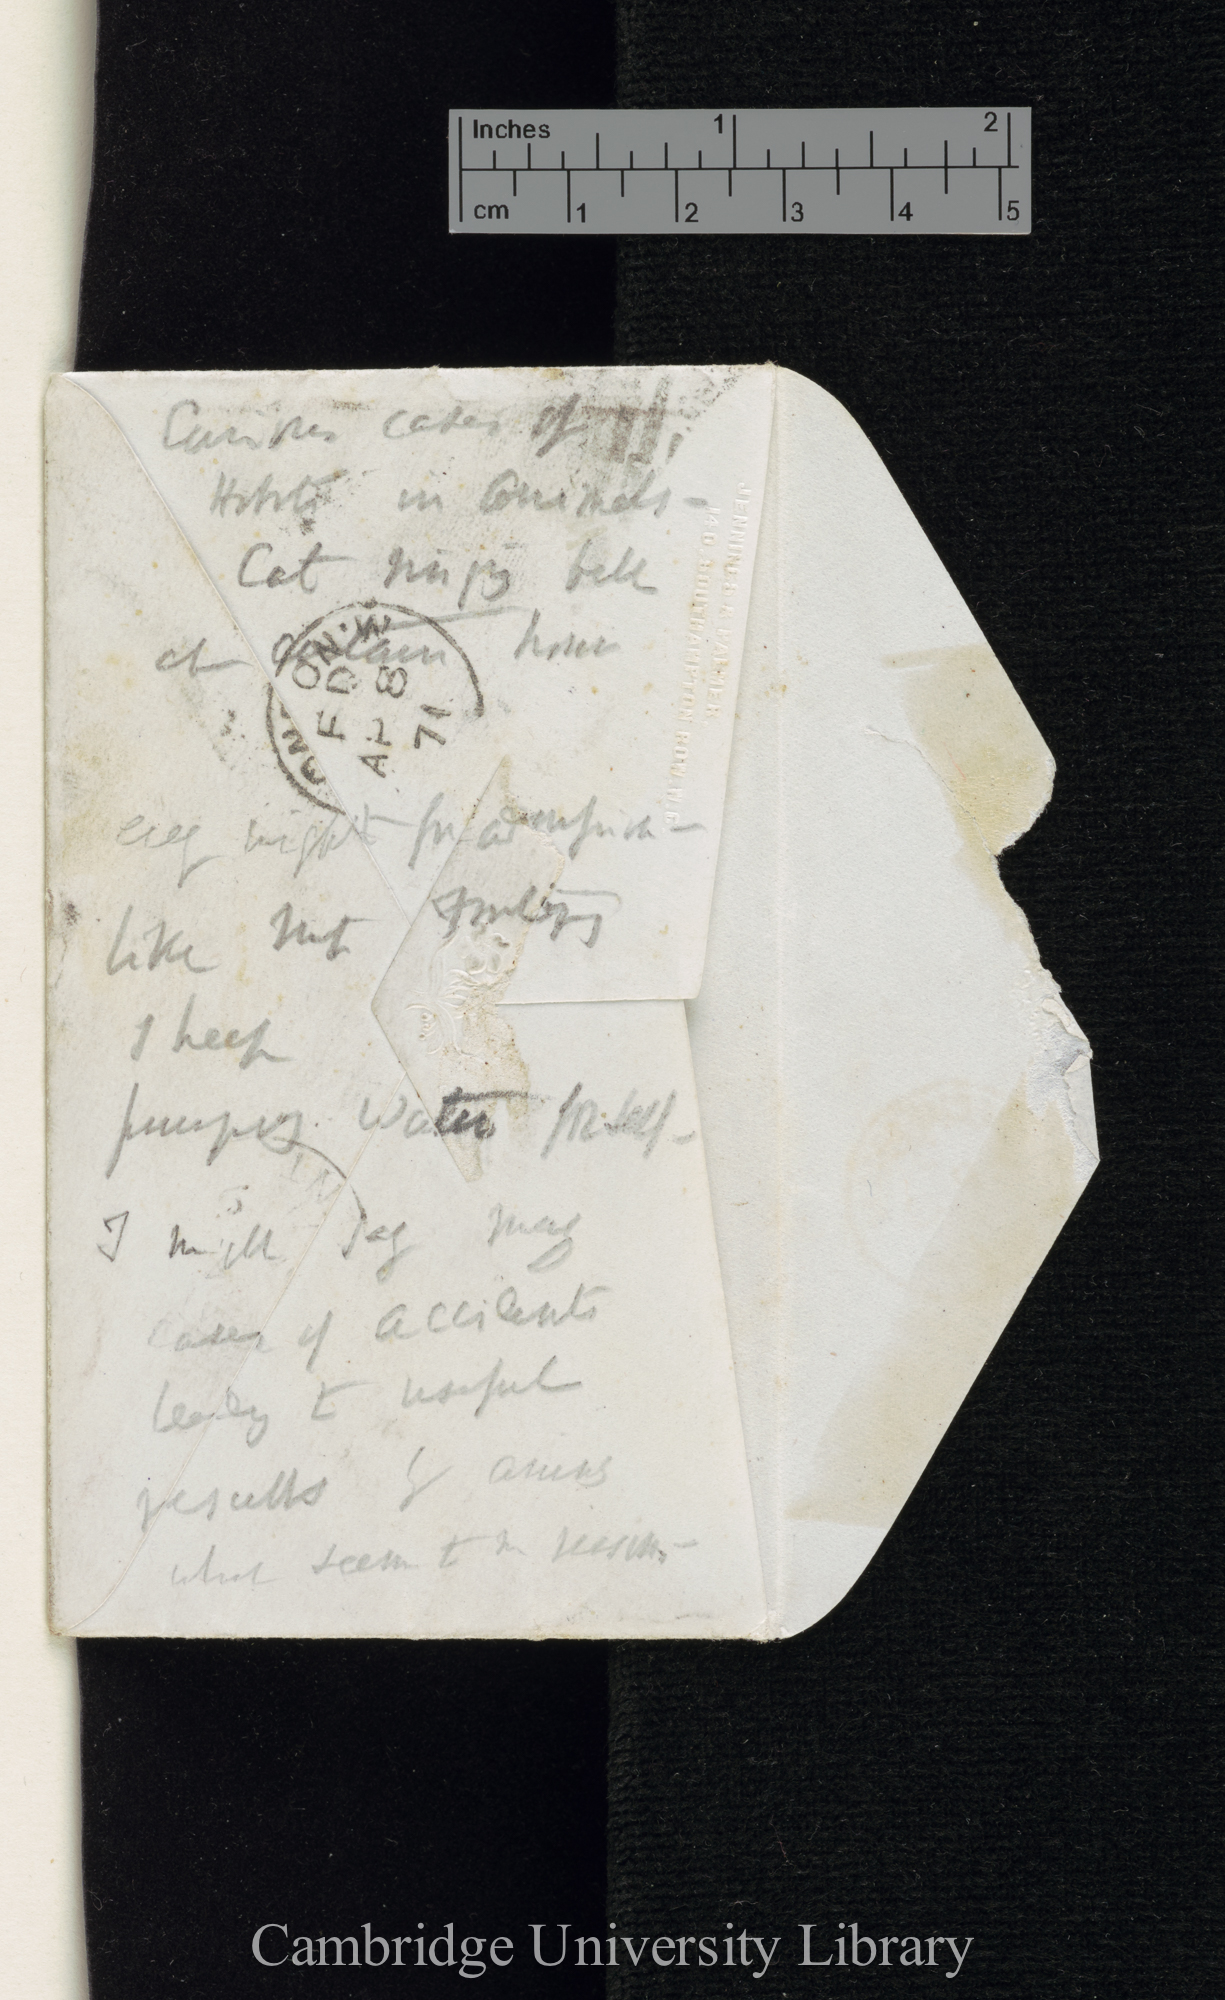 Inches 1 2
cm 1 2 3 4 5
Curious cases of
Habits in Animals –
Cat ringing bell
at certain hour
LONDON·W
F D
AP 8
71
JENNINGS & PALMER
140 SOUTHAMPTON ROW W.C
every night for admission –
like not
Sheep
pumping water for self –
I might say many
cases of accidents
leading to useful
results &
what seem to reason –
Cambridge University Library